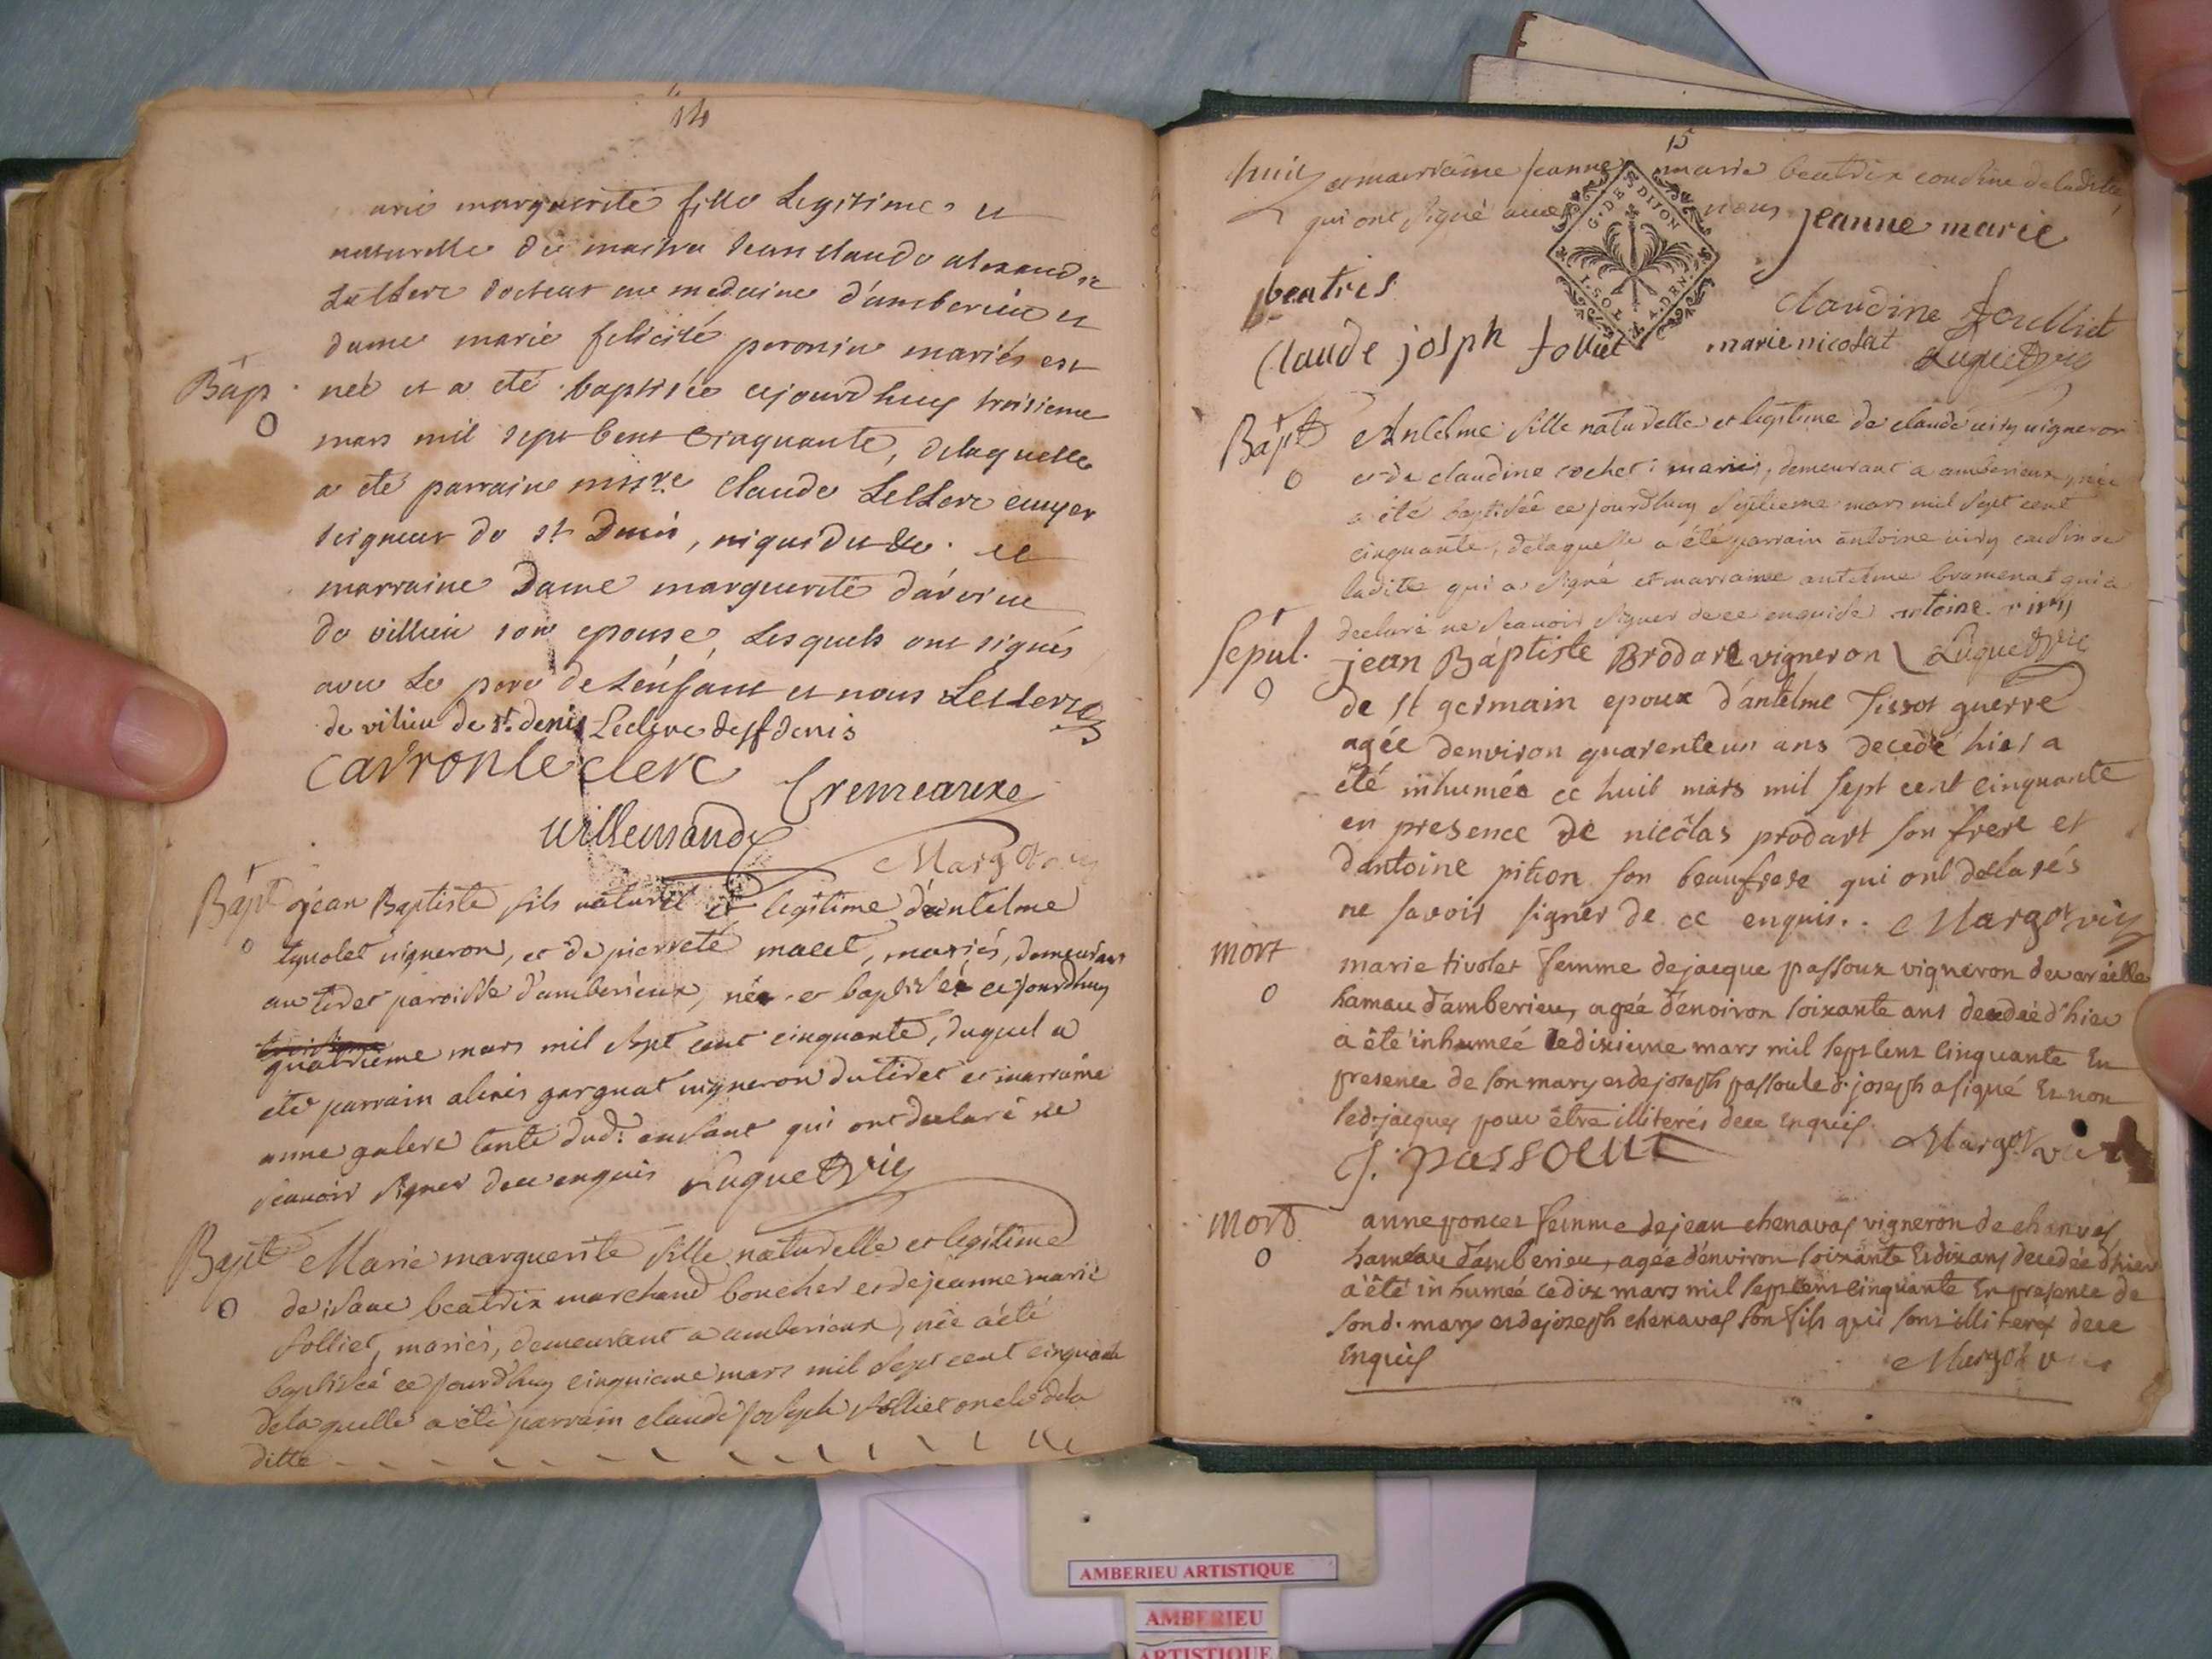 14
marie marguerite fille Legitime et
naturelle de maitre Jean claude alexandre
LeClerc docteur en medecine d'amberieu et
dame marie felicité peronin mariés est
Bap. neé et a eté baptisée cejourdhuy troisieme
mars mil sept cent cinquante, delaquelle
a eté parrain claude LeClerc ecuyer
seigneur de st Denis, et
marraine Dame marguerite
de villieu son epouse, Lesquels ont signés
avec Le pere de L'enfant et nous LeClerc
de vilieu de st. denis Leclerc de st denis
Carron le clerc
Cremeaux
Margot
Bapt jean Baptiste fils naturel et legitime d'antelme
vigneron, et de pierrete mariés, demeurant
au tiret paroisse d'amberieux, né et baptisé cejourdhuy
quatrieme mars mil sept cent cinquante, duquel a
eté parrain alexis garguat vigneron du tiret et marraine
anne galere tante dud: enfant qui ont declaré ne
scauoir signer de ce enquis Luguet vic
Bapt Marie marguerite fille naturelle et legitime
de beatrix marchand boucher et de jeanne marie
folliet, mariés, demeurant a amberieux, née a été
baptisée ce jourdhuy cinquieme mars mil sept cent cinquante
delaquelle a été parrain claude joseph folliet oncle dela
ditte
15
et marraine jeanne marie beatrix cousine deladitte,
qui ont signé avec nous jeanne marie
beatris
G. DE DIJON
claudine folliet
claude josph folliet marie nicolat Luguet vic
Bapt Antelme fille naturelle et legitime de claude viry vigneron
et de claudine cochet mariés, demeurant a amberieux, née
a été baptisée ce jourdhuy septieme mars mil sept cent
cinquante, delaquelle a été parrain antoine viry cousin de
ladite qui a signé et marraine antelme bramenat qui a
declaré ne scauoir signer de ce enquise antoine viry
Sepul. jean Baptiste Brodart vigneron Luguet vic
de st germain epoux d'antelme Tissot guerre
agée denviron quarente un ans decedé hier a
été inhumée ce huit mars mil sept cent cinquante
en presence de nicolas prodart son frere et
d'antoine pition son beaufrere qui ont delarés
ne savoir signer de ce enquis.. Margot vic
mort marie tivolet femme dejacque passoux vigneron de vareille
hamau d'amberieu, agée d'environ soixante ans decedeé d'hier
a été inhumeé le dixieme mars mil sept cent cinquante En
presence de son mary et de joseph passou led. joseph a signé Et non
led. jacques pour être illiterés dece Enquis
J. passout Margot vic
mort anne poncet femme dejean chenavas vigneron de
hameau d'amberieu, agée d'environ soixante Et dix ans decedée d'hier
a été inhumeé ce dix mars mil sept cent cinquante En presence de
son d. mary et de joseph chenavas son fils qui sont illiterez dece
Enquis Margot
AMBERIEU ARTISTIQUE
AMBERIEU
ARTISTIQUE